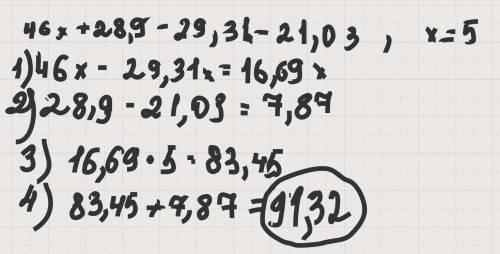 46x + 28,9 - 29,31 - 21,03 , x = 5
1) 46x - 29,31x = 16,69x
2) 28,9 - 21,03 = 7,87
3) 16,69 • 5 = 83,45
4) 83,45 + 7,87 = 91,32